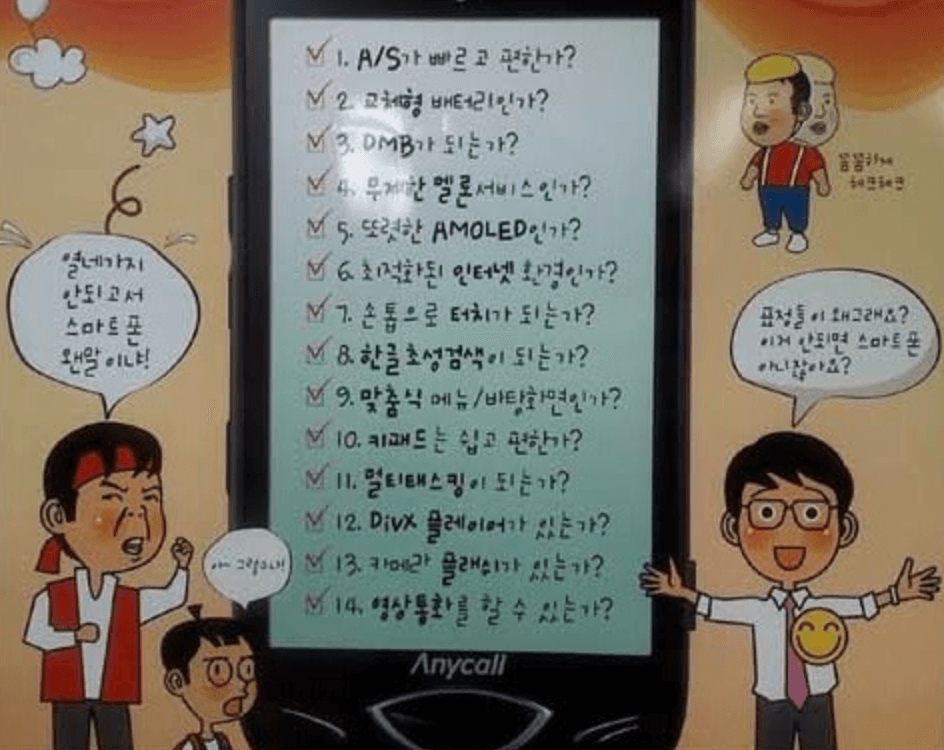 1. A/S가 빠르고 편한가?
2. 교체형 배터리인가?
3. DMB가 되는가?
4. 무제한 멜론서비스인가?
5. 또렷한 AMOLED인가?
6. 최적화된 인터넷 환경인가?
7. 손톱으로 터치가 되는가?
8. 한글초성검색이 되는가?
9. 맞춤식 메뉴/바탕화면인가?
10. 키패드는 쉽고 편한가?
11. 멀티태스킹이 되는가?
12. DivX 플레이어가 있는가?
13. 카메라 플래쉬가 있는가?
14. 영상통화를 할 수 있는가?
Anycall
열네가지
안되고서
스마트폰
왠말이냐!
꼼꼼하게
체크체크
표정들이 왜그래요?
이거 안되면 스마트폰
아니잖아요?